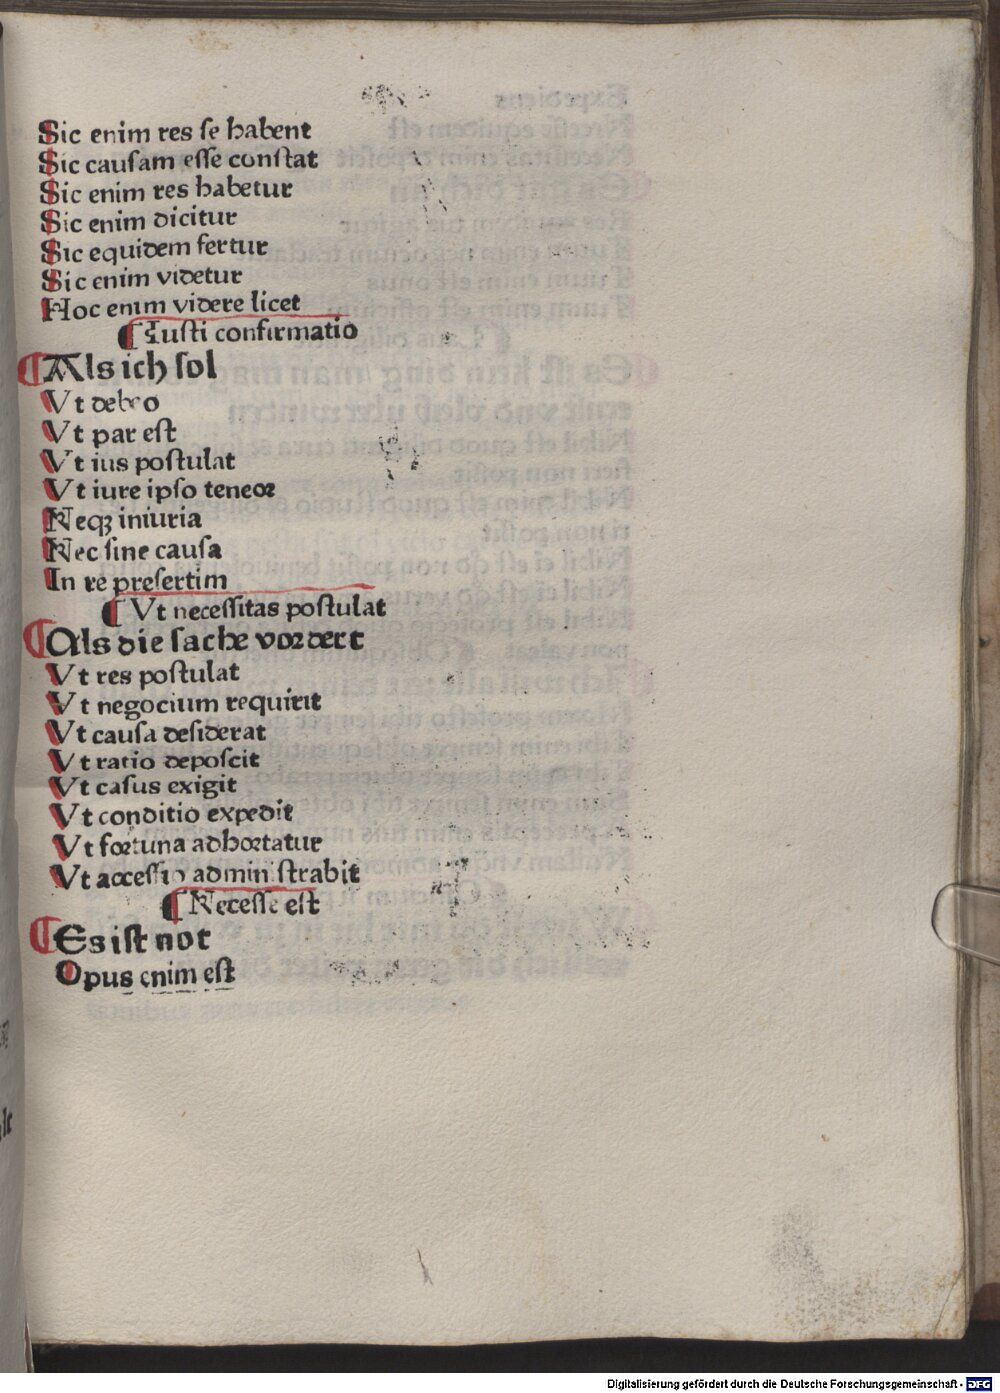 Sic enim res se habent
Sic causam esse constat
Sic enim res habetur
Sic enim dicitur
Sic equidem fertur
Sic enim videtur
Hoc enim videre licet
¶ Iusti confirmatio
¶ Als ich sol
Vt debeo
Vt par est
Vt ius postulat
Vt iure ipso teneor
Neqꝫ iniuria
Nec sine causa
In re presertim
¶ Vt necessitas postulat
¶ Als die sache vordert
Vt res postulat
Vt negocium requirit
Vt causa desiderat
Vt ratio deposcit
Vt casus exigit
Vt conditio expedit
Vt fortuna adhortatur
Vt accessio administrabit
¶ Necesse est
¶ Es ist not
Opus enim est
Digitalisierung gefördert durch die Deutsche Forschungsgemeinschaft - DFG